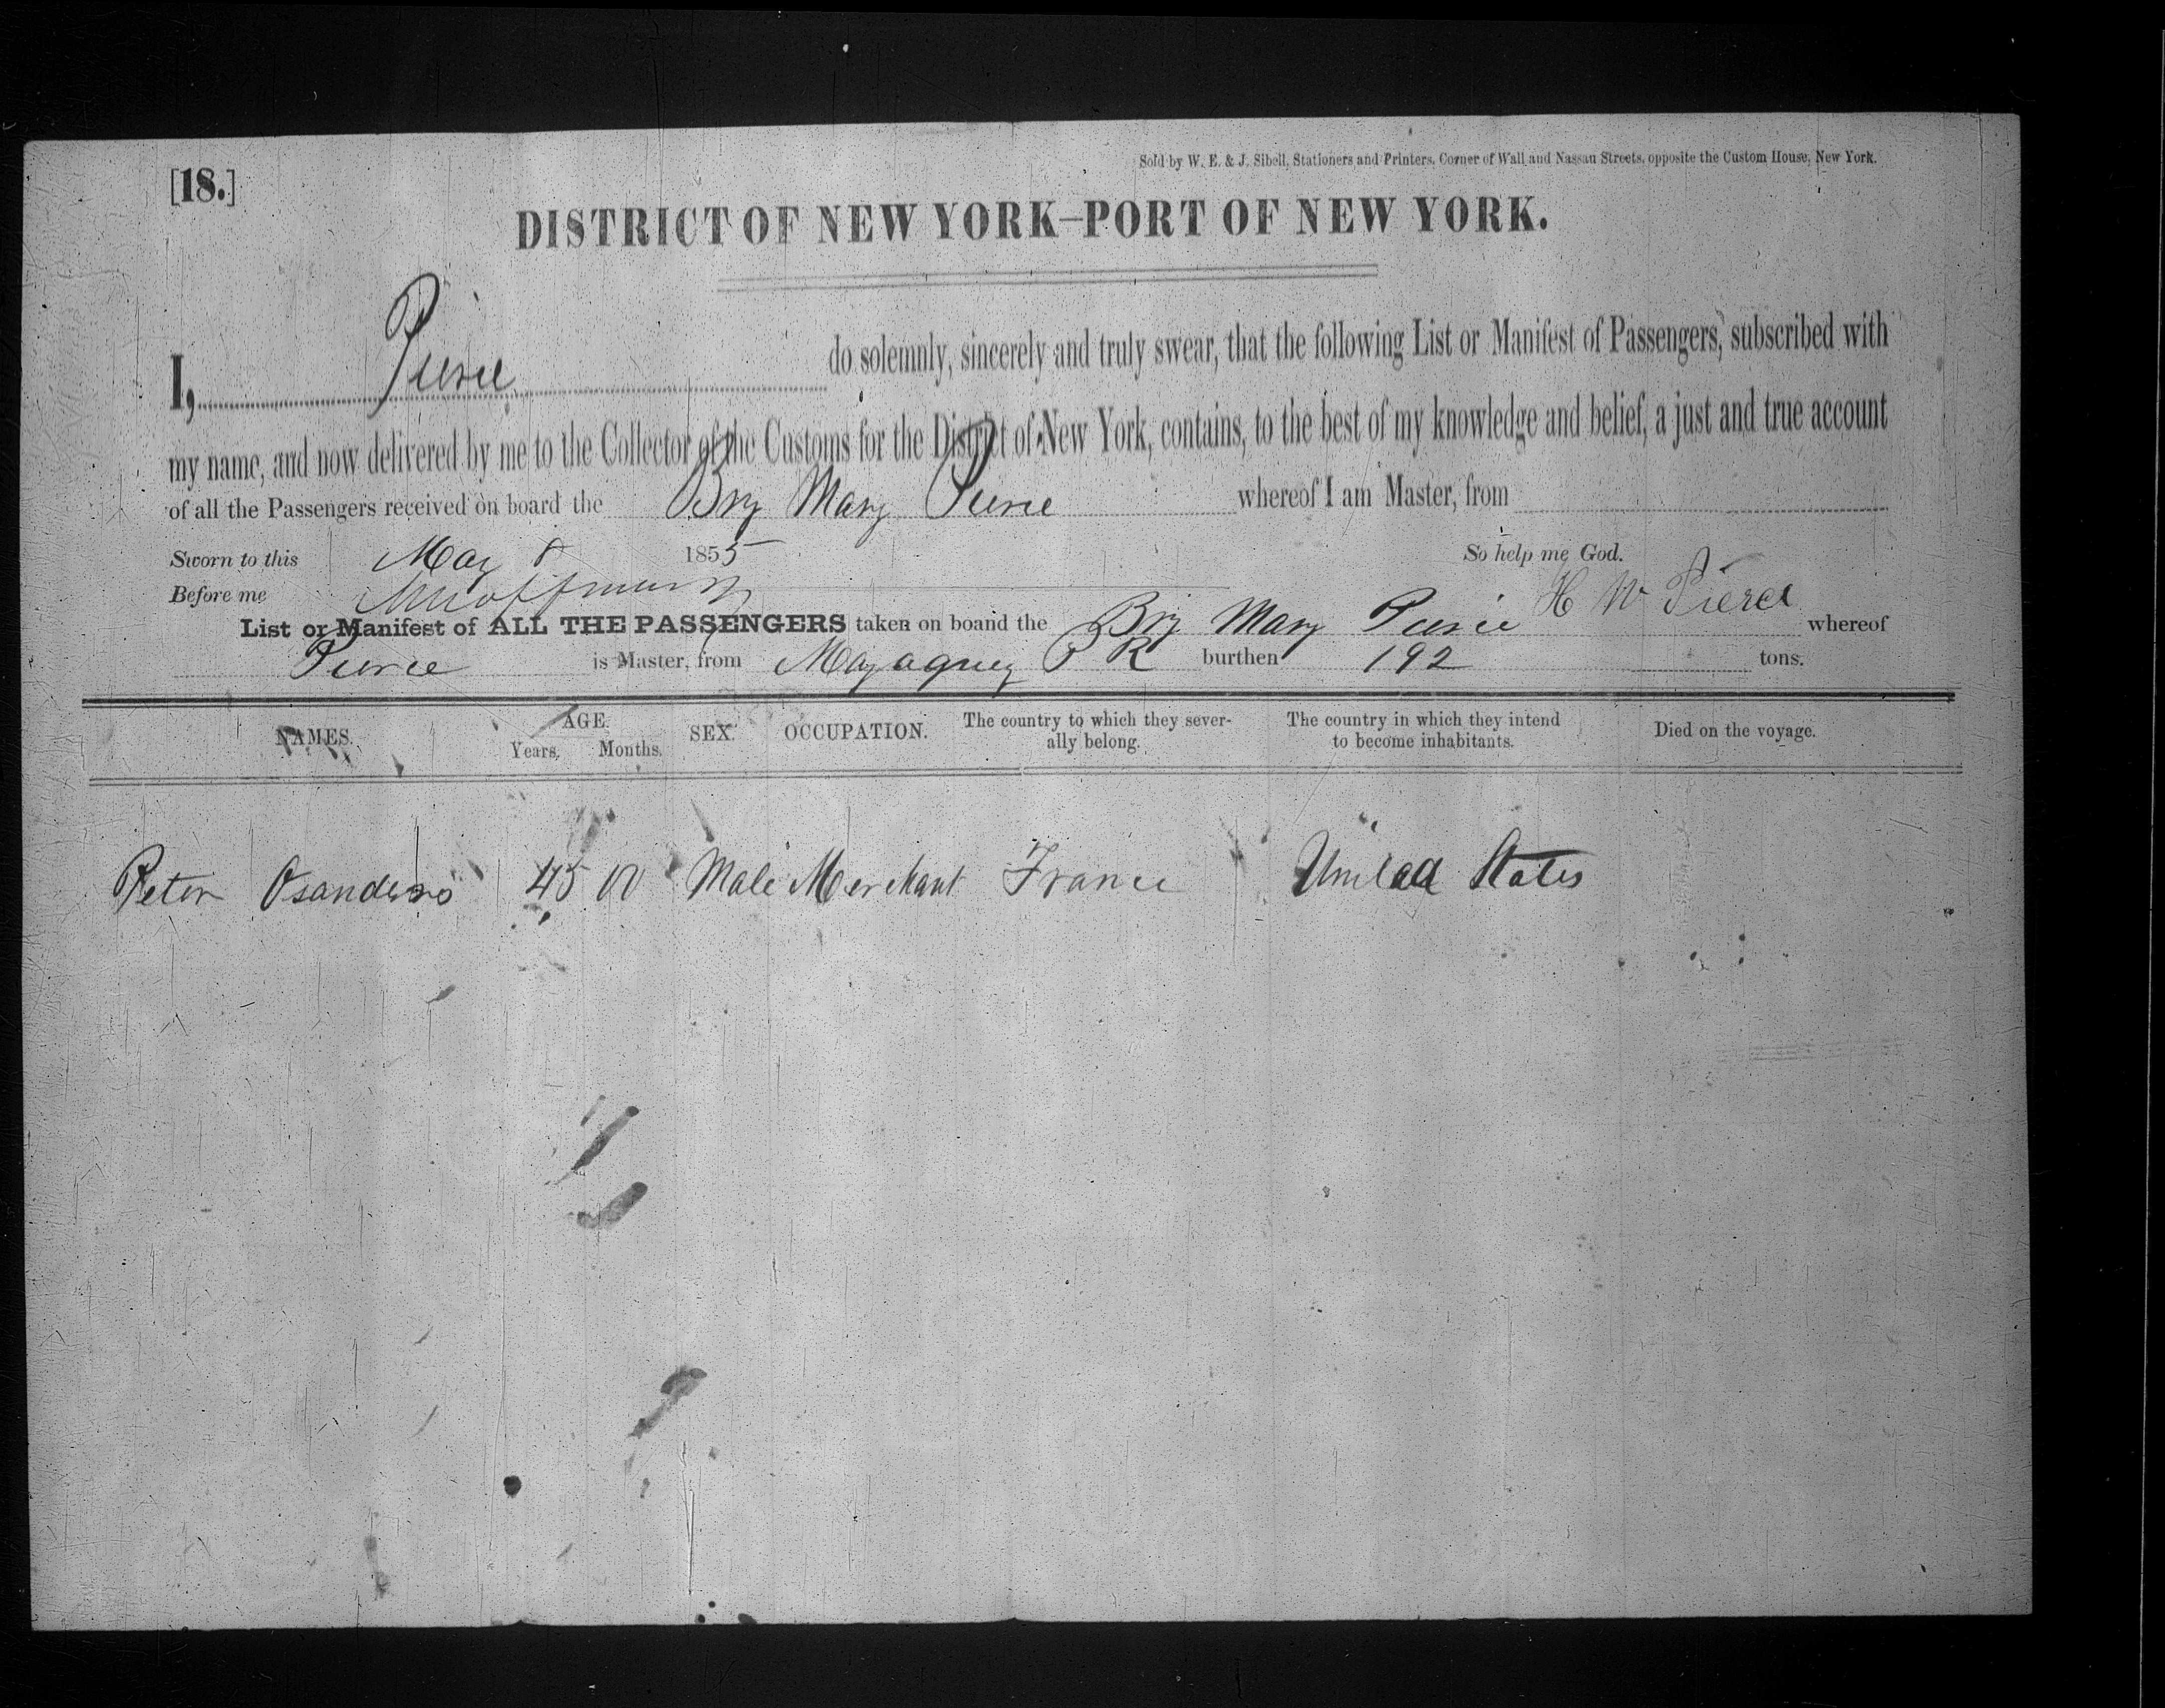 Sold by W. E. & J. Sibell, Stationers and Printers, Corner of Wall and Nassau Streets, opposite the Custom House, New York.
[18.]
DISTRICT OF NEW YORK–PORT OF NEW YORK.
I, Pierce do solemnly, sincerely and truly swear, that the following List or Manifest of Passengers, subscribed with
my name, and now delivered by me to the Collector of the Customs for the District of New York, contains, to the best of my knowledge and belief, a just and true account
of all the Passengers received on board the Brig Mary Pierce whereof I am Master, from
Sworn to this May 8 1855 So help me God.
Before me H W Pierce
List or Manifest of ALL THE PASSENGERS taken on boand the Brig Mary Pierce whereof
Pierce is Master, from Mayaguez P R burthen 192 tons.
NAMES. AGE. Years. Months. SEX. OCCUPATION. The country to which they sever-ally belong. The country in which they intend to become inhabitants. Died on the voyage.
Peter 45 Male Merchant France United States